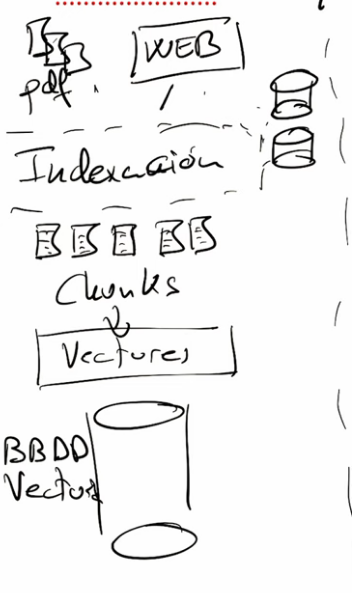 WEB
pdf
Indexación
Chunks
Vectores
BBDD
Vector